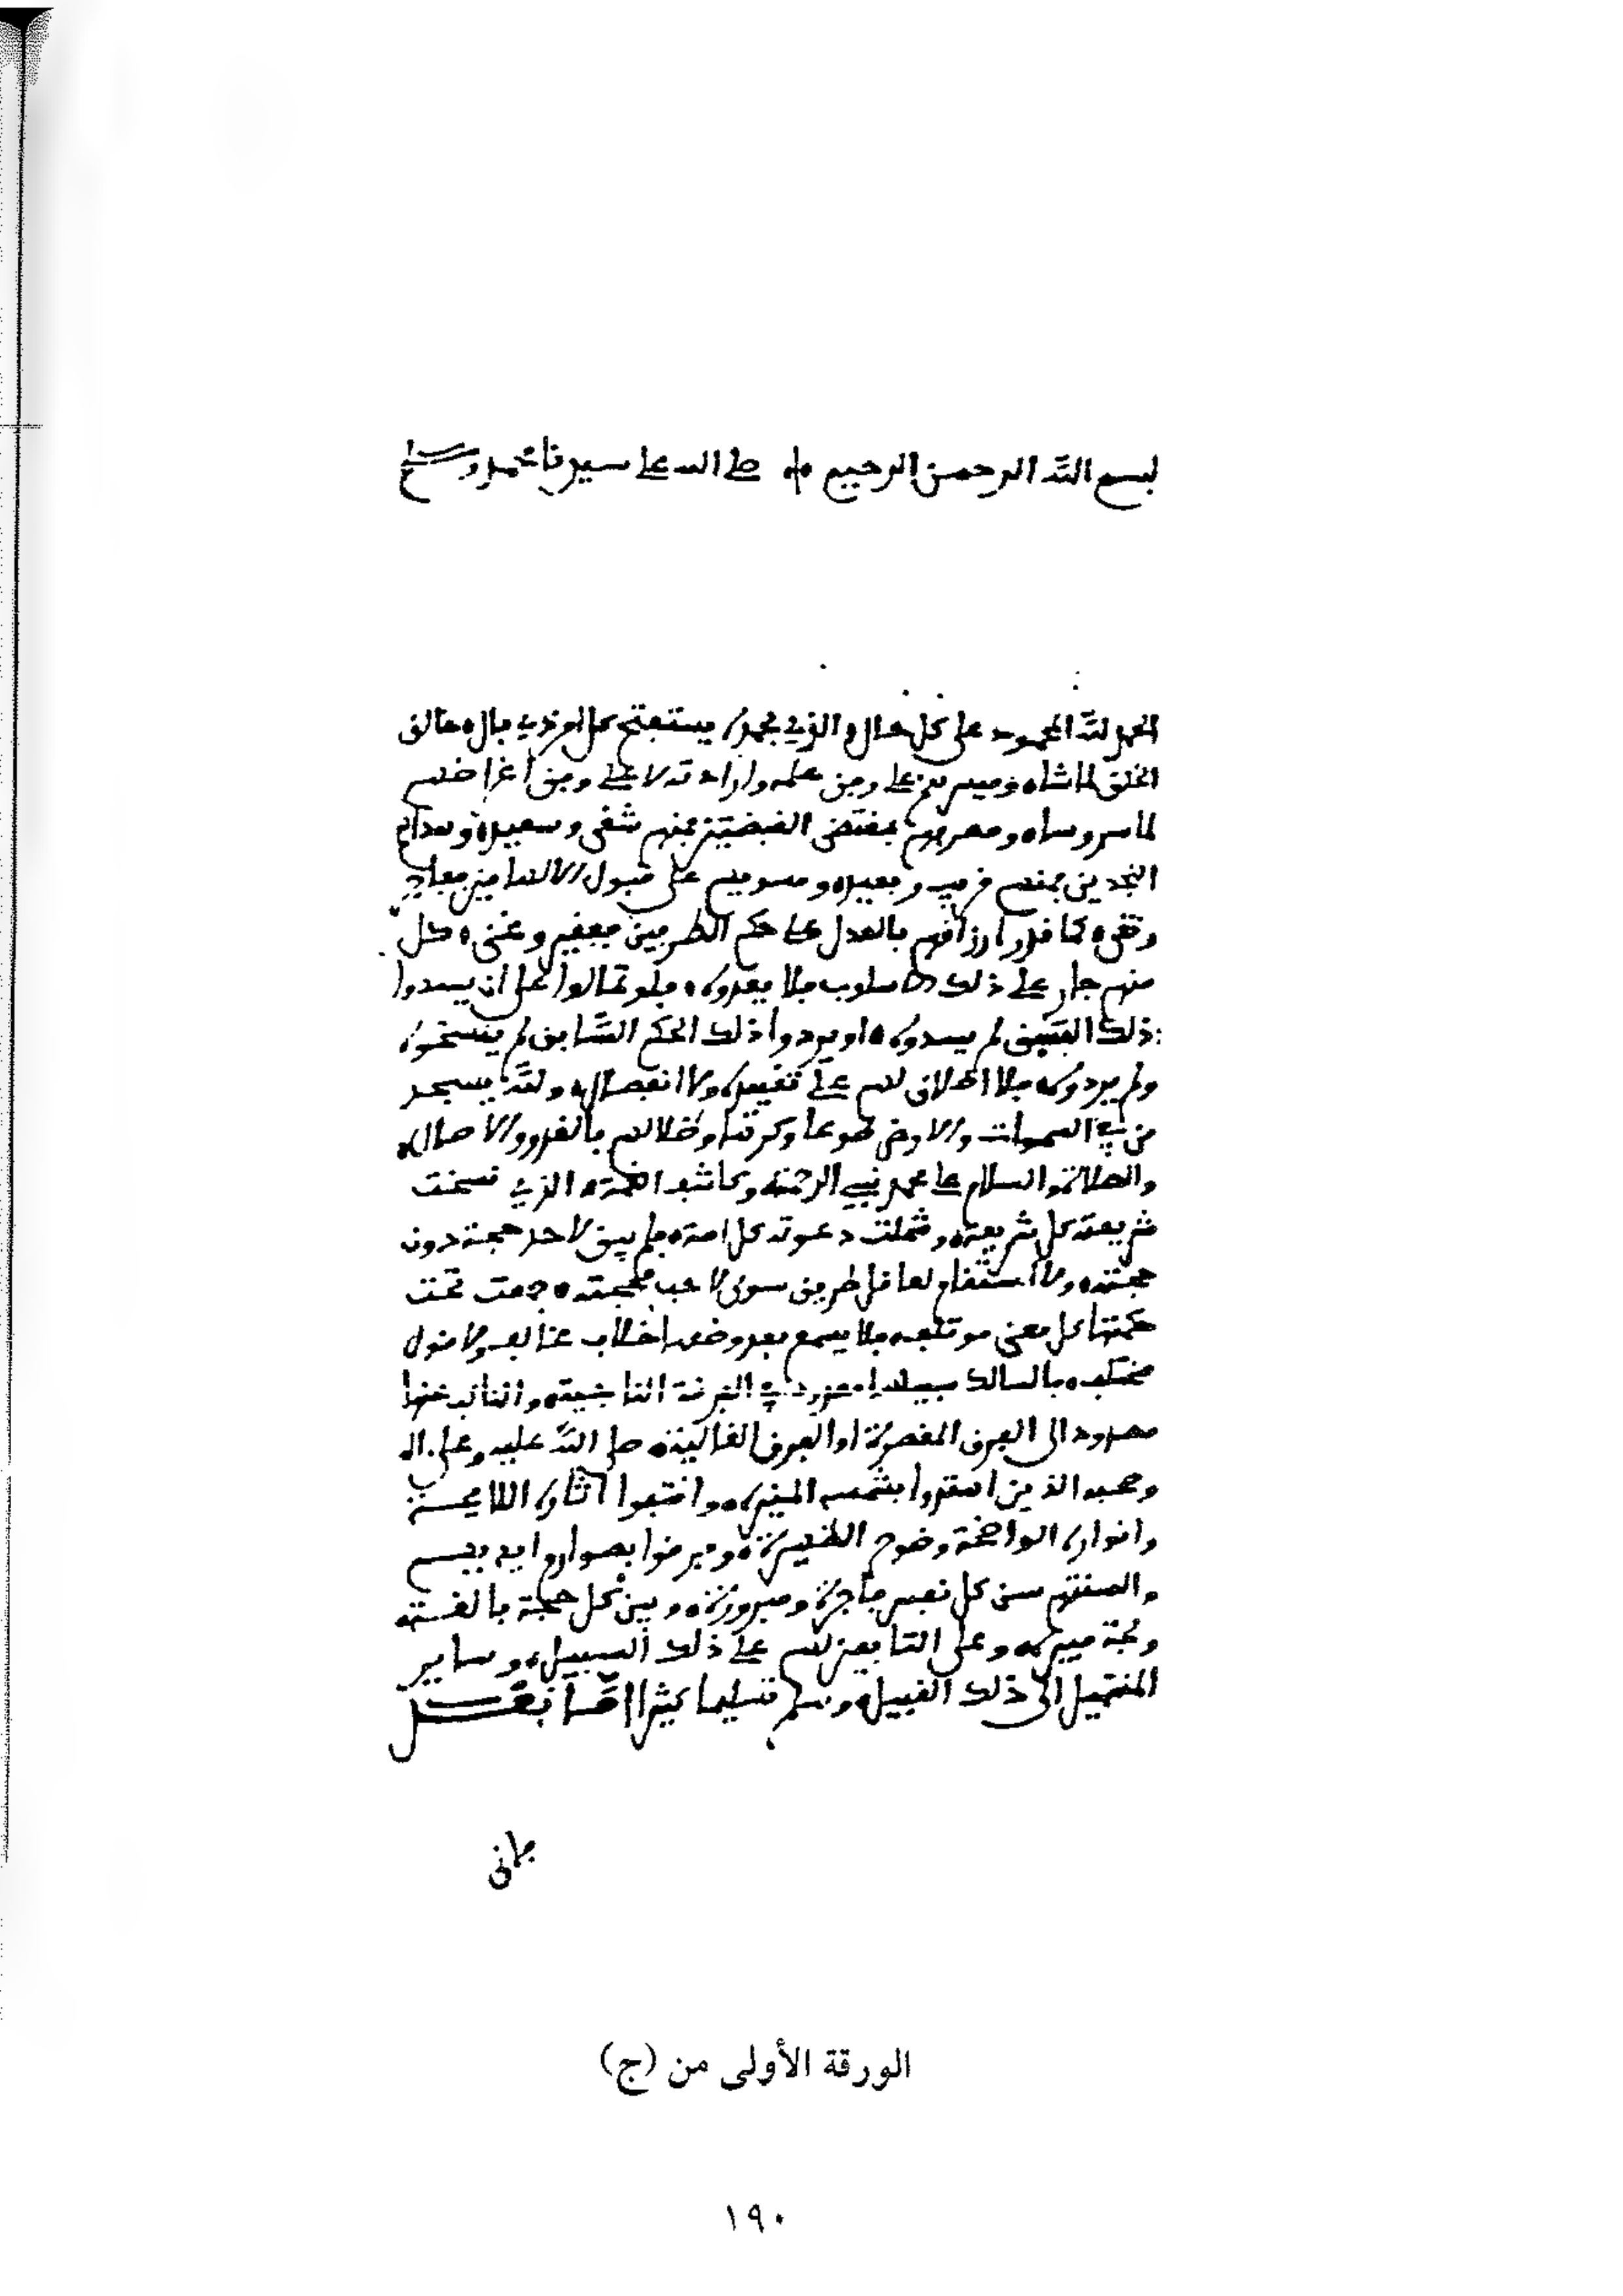 بسم الله الرحمن الرحيم صلى الله على سيدنا محمد وسلم
الحمد لله المحمود على كل حال الذي بحمده يستفتح كل امر ذي بال خالق
الخلق لما شاء وميسرهم على وفق علمه وارادته لا على وفق أغراضهم
لما سر وساء ومصرفهم بمقتضى القبضتين فمنهم شقي وسعيد وهداهم
النجدين فمنهم قريب وبعيد ومسويهم على قبول الالهامين ففاجر
وتقي كما قدر ارزاقهم بالعدل على حكم الطرفين ففقير وغني كل
منهم جار على ذلك الاسلوب فلا يعدوه فلو تمالوا على ان يسدوا
ذلك الفتق لم يسدوه او يردوا ذلك الحكم السابق لم ينسخوه
ولم يردوه فلا اطلاق لهم على تقييده ولا انفصال ولله يسجد
من في السموات والارض طوعا وكرها وظلالهم بالغدو والاصال
والصلاة والسلام على محمد نبي الرحمة وكاشف الغمة الذي نسخت
شريعته كل شريعة وشملت دعوته كل امة فلم يبق لاحد حجة دون
حجته ولا استقام لعاقل طريق سوى لاحب محجته وجمعت تحت
حكمتها كل معنى مؤتلف فلا يسمع بعد وضعها خلاف مخالف ولا قول
مختلف فالسالك سبيلها معدود في الفرقة الناجية والناكب عنها
مصدود الى الفرق المقصرة او الفرق الغالية صلى الله عليه وعلى اله
وصحبه الذين اهتدوا بشمسه المنيرة واقتفوا اثاره اللايحة
وانواره الواضحة وضوح الظهيرة وفرقوا بصوارم ايديهم
والسنتهم بين كل نفس فاجرة ومبرورة وبين كل حجة بالغة
وحجة مبيرة وعلى التابعين لهم على ذلك السبيل وساير
المنتمين الى ذلك القبيل وسلم تسليما كثيرا اما بعد
فاني
الورقة الأولى من (ج)
١٩٠